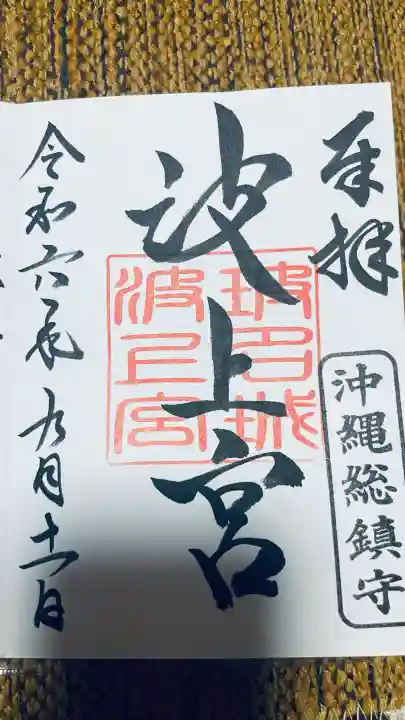 奉拝
沖縄総鎮守
波上宮
波上宮
令和六年九月十一日